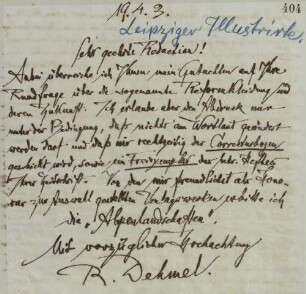 404
19.4.3.
Leipziger Illustrirte.
Sehr geehrte Redaction!
Anbei überreiche ich Ihnen mein Gutachten auf Ihre
Rundfrage über die sogenannte Reformkleidung und
deren Zukunft. Ich erlaube aber den Abdruck nur
unter der Bedigung, daß nichts am Wortlaut geändert
werden darf und daß mir rechtzeitig der Correcturbogen
geschickt wird, sowie ein Freiexemplar des betr. Heftes
Ihrer Zeitschrift. Von den mir freundlichst als Hono-
rar zur Auswahl gestellten Verlagswerken erbitte ich
die „Alpenlandschaften“.
Mit vorzüglicher Hochachtung
R. Dehmel.